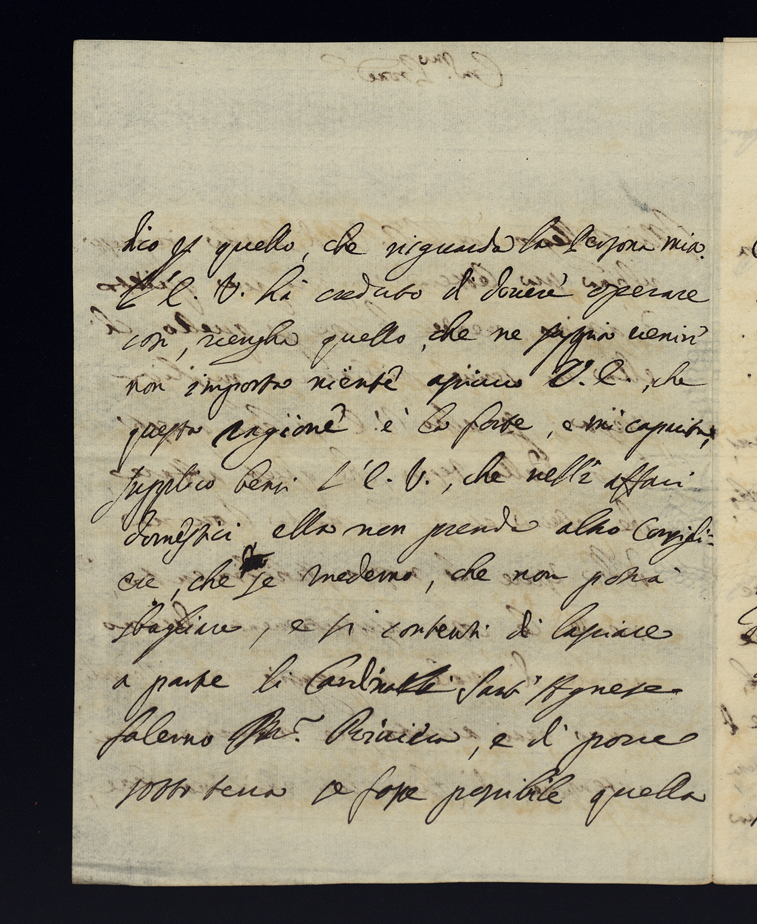 dico p quello, che riguarda la Persona mia.
L'E. V. hà creduto di dovere operare
così, venghi quello, che ne sappia venir
non importa niente apresso V. E., che
questa ragione è la forte, e mi capacita,
supplico bensi l'E. V., che nelli affari
domestici ella non prenda altro Consigli-
ere, che se medemo, che non potrà
sbagliare, e si contenti di lasciare
a parte li Cardinali Sant'Agnese
Salerno, e di porre
sotto terra se fosse possibile quella